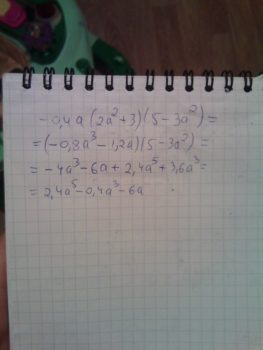 -0,4a(2a²+3)(5-3a²)=
=(-0,8a³-1,2a)(5-3a²)=
=-4a³-6a+2,4a⁵+3,6a³=
=2,4a⁵-0,4a³-6a